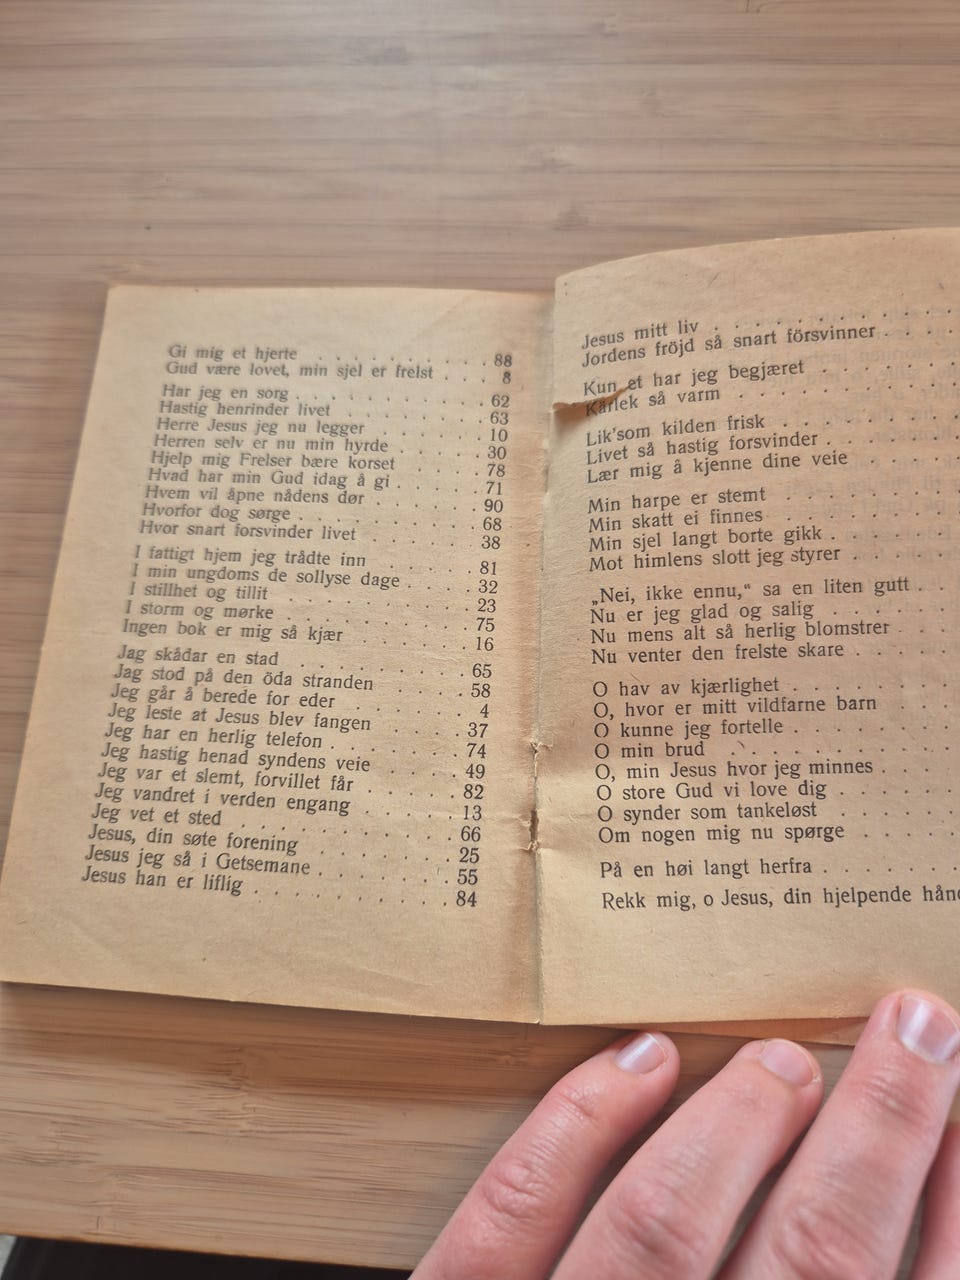 Gi mig et hjerte . . . . . . . . . 88
Gud være lovet, min sjel er frelst . . . 8
Har jeg en sorg . . . . . . . . . 62
Hastig henrinder livet . . . . . . . 63
Herre Jesus jeg nu legger . . . . . . 10
Herren selv er nu min hyrde . . . . . 30
Hjelp mig Frelser bære korset . . . . 78
Hvad har min Gud idag å gi . . . . . 71
Hvem vil åpne nådens dør . . . . . . 90
Hvorfor dog sørge . . . . . . . . . 68
Hvor snart forsvinder livet . . . . . 38
I fattigt hjem jeg trådte inn . . . . . 81
I min ungdoms de sollyse dage . . . . 32
I stillhet og tillit . . . . . . . . . 23
I storm og mørke . . . . . . . . . 75
Ingen bok er mig så kjær . . . . . . 16
Jag skådar en stad . . . . . . . . 65
Jag stod på den öda stranden . . . . 58
Jeg går å berede for eder . . . . . . 4
Jeg leste at Jesus blev fangen . . . . 37
Jeg har en herlig telefon . . . . . . 74
Jeg hastig henad syndens veie . . . . 49
Jeg var et slemt, forvillet får . . . . . 82
Jeg vandret i verden engang . . . . . 13
Jeg vet et sted . . . . . . . . . . 66
Jesus, din søte forening . . . . . . . 25
Jesus jeg så i Getsemane . . . . . . 55
Jesus han er liflig . . . . . . . . . 84
Jesus mitt liv . . . . . . . . .
Jordens fröjd så snart försvinner . . . .
Kun et har jeg begjæret . . . . . .
Kärlek så varm . . . . . . . .
Lik'som kilden frisk . . . . . . .
Livet så hastig forsvinder . . . . .
Lær mig å kjenne dine veie . . . .
Min harpe er stemt . . . . . . .
Min skatt ei finnes . . . . . . .
Min sjel langt borte gikk . . . . .
Mot himlens slott jeg styrer . . . .
„Nei, ikke ennu,“ sa en liten gutt . .
Nu er jeg glad og salig . . . . . .
Nu mens alt så herlig blomstrer . . .
Nu venter den frelste skare . . . .
O hav av kjærlighet . . . . . . .
O, hvor er mitt vildfarne barn . . .
O kunne jeg fortelle . . . . . . .
O min brud . . . . . . . . .
O, min Jesus hvor jeg minnes . . .
O store Gud vi love dig . . . . .
O synder som tankeløst . . . . .
Om nogen mig nu spørge . . . . .
På en høi langt herfra . . . . . .
Rekk mig, o Jesus, din hjelpende